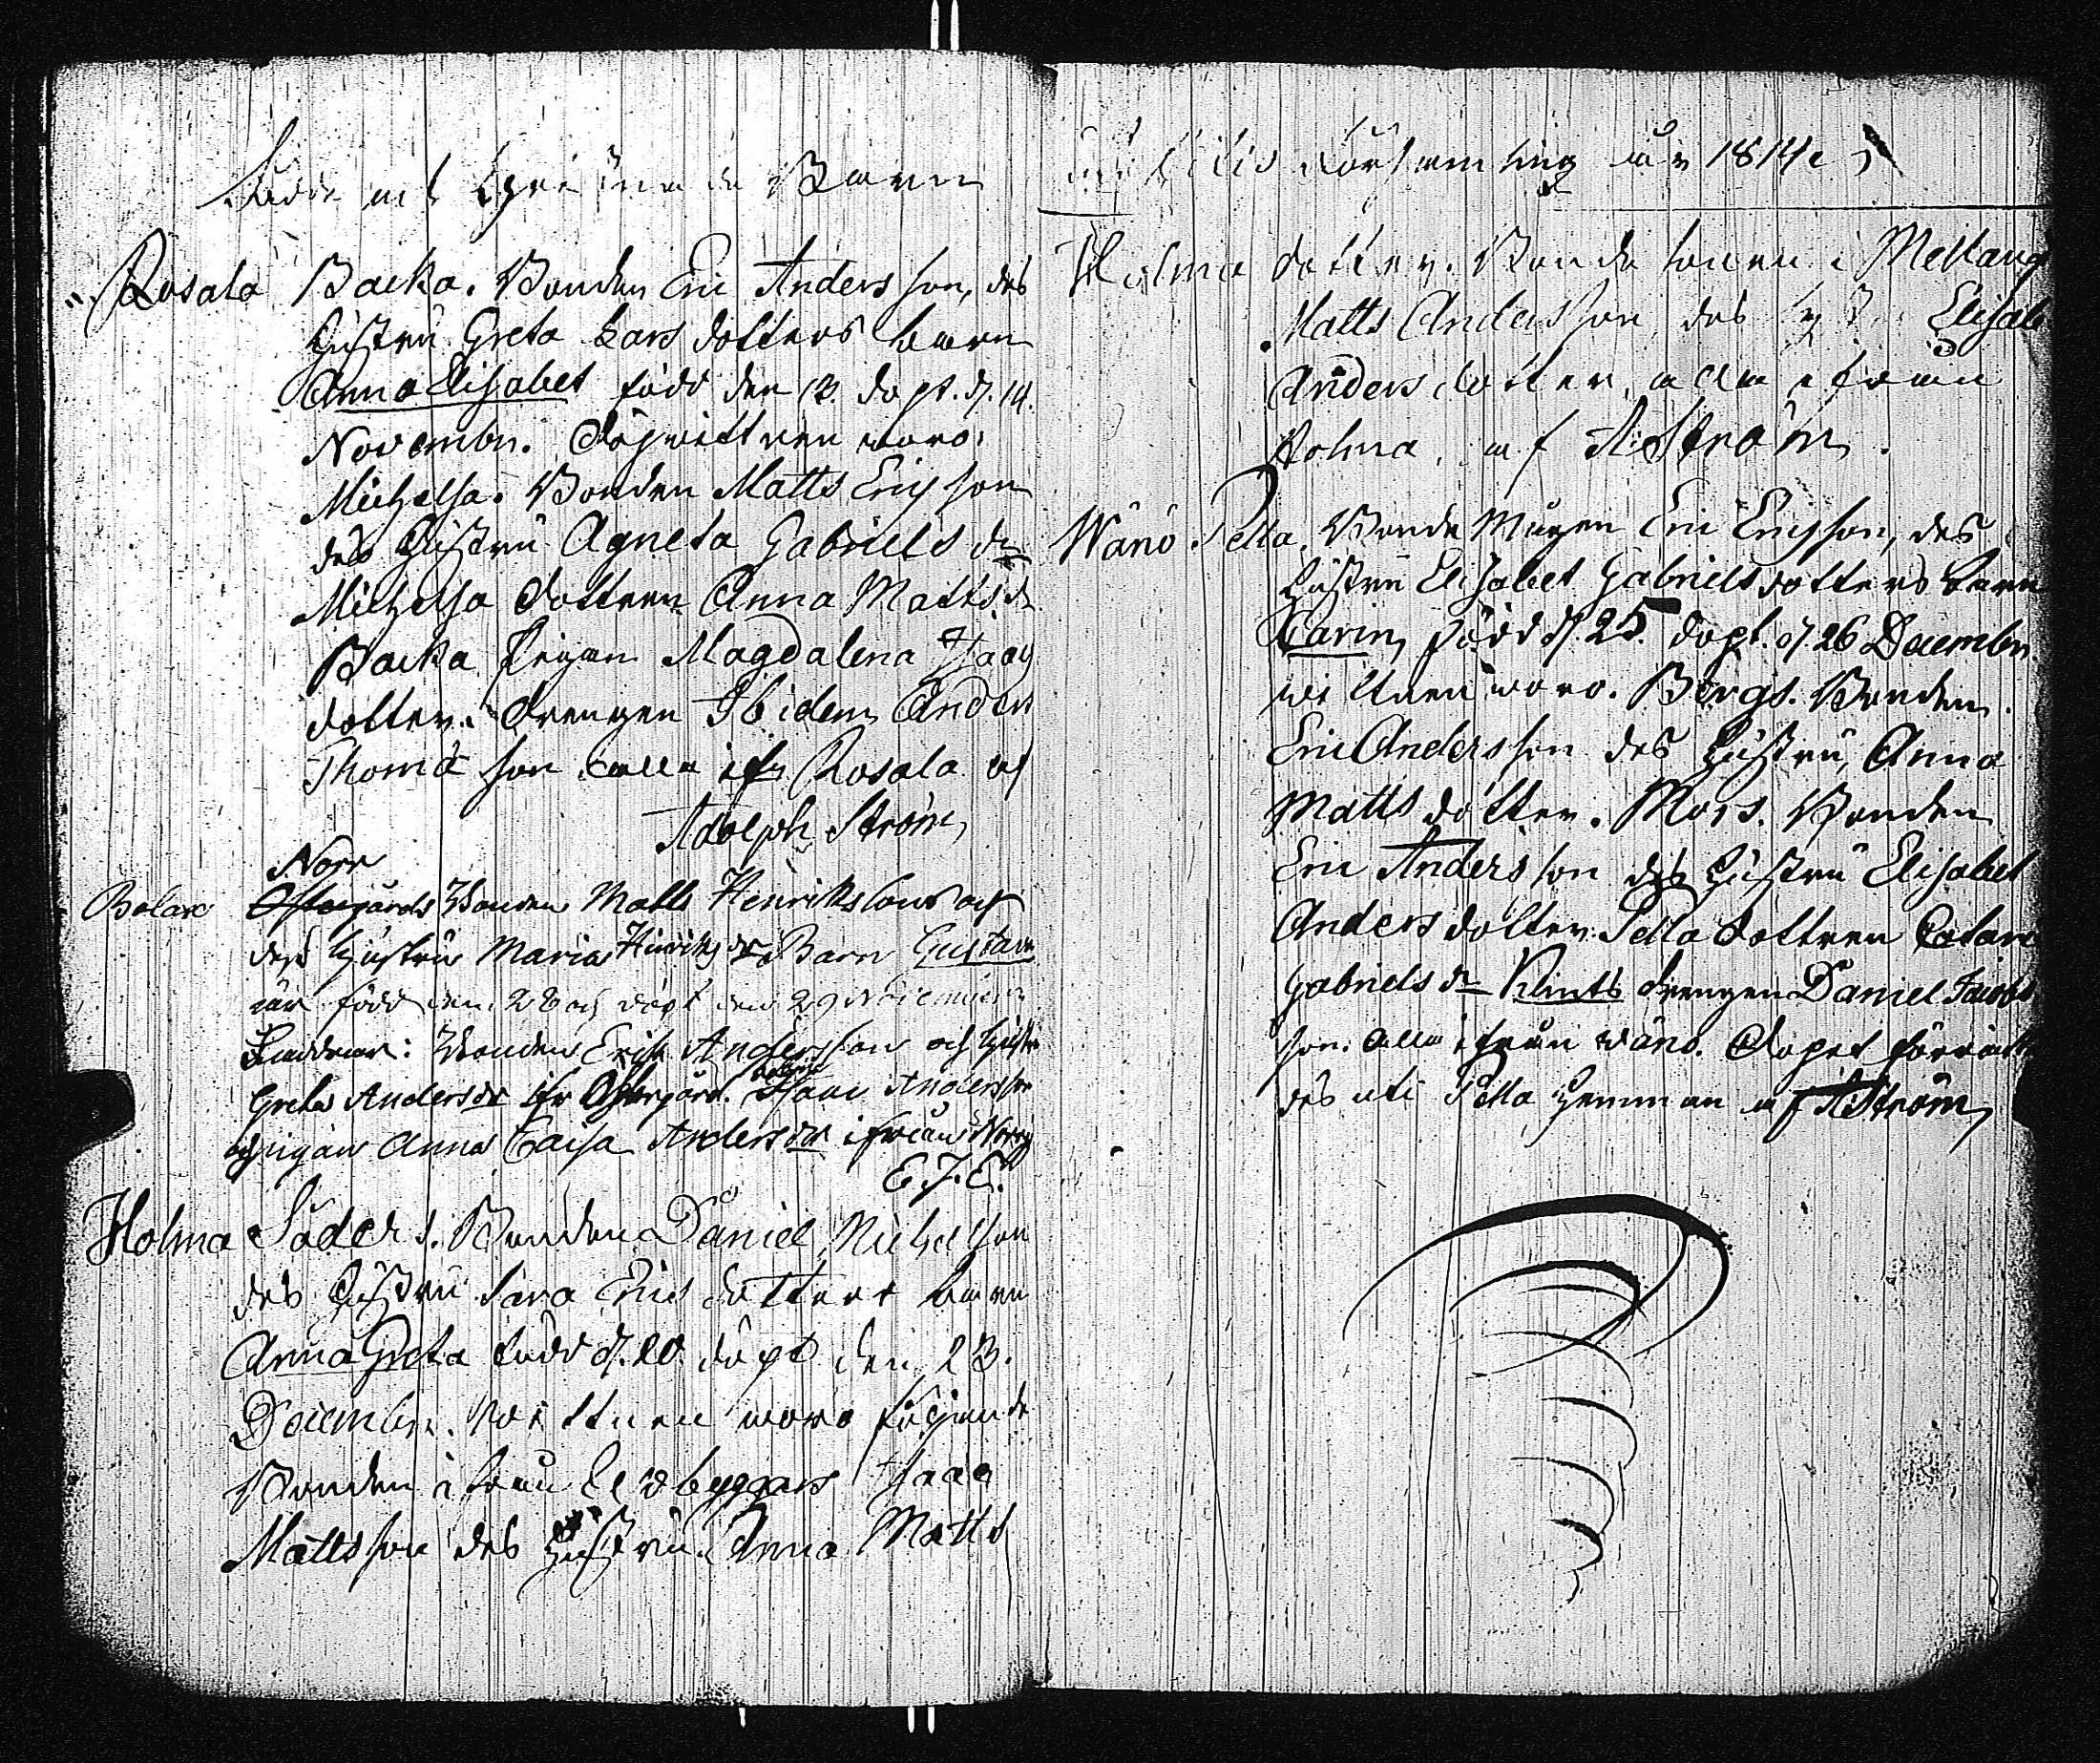 Födde och Christnade Barn
Rosala Backa. Bonden Eric Andersson, des
hustru Greta Larsdotters barn
Anna Elisabet född den 13. döpt. d. 14.
Novembr. Dopwittnen woro.
Michelsa. Bonden Matts Ericsson
des hustru Agneta Gabriels dr
Michelsa dottren Anna Matts dr
Backa pigan Magdalena Isacs
dotter. drengen Ibidem Anders
Thomasson alla ifr Rosala af
Adolph Ström
Norr
Bolax Östergårds Bonden Matts Henriksons och
dess hustru Maria Hinriks dr Barn Gustava
född den 28 och döpt den 29 November
Faddrar: Bonden Erik Andersson och hustru
Greta Anders dr ifr Östergård. Andersson
och pigan Anna Caisa Anders dr ifrån Norrg
E.J.E.
Holma Söders. Bonden Daniel Michelsson
des hustru Sara Erics dotters barn
Anna Greta född d. 20 döpt den 23.
Decembr. Wittnen woro följande
Bonden ifrån Isac
Mattsson des hustru Anna Matts
församling år 1814
Holma dotter. Bonde sonen i Mellang
Matts Andersson, des Elisab
Anders dotter, alla ifrån
Holma, af A Ström.
Wänö Pella. Bonde Mågen Eric Ericsson, des
hustru Elisabet Gabrielsdotters barn
Carin, född d. 25. döpt. d. 26 Decembr.
wittnen woro. Bergs. Bonden
Eric Andersson des hustru, Anna
Matts dotter. Mors. Bonden
Eric Andersson des hustru Elisabet
Anders dotter. Pella dottren
Gabriels dr Klints drengen Daniel Jacobs
son. alla ifrån wänö. Dopet förrätta
des uti Pella hemman af A Ström